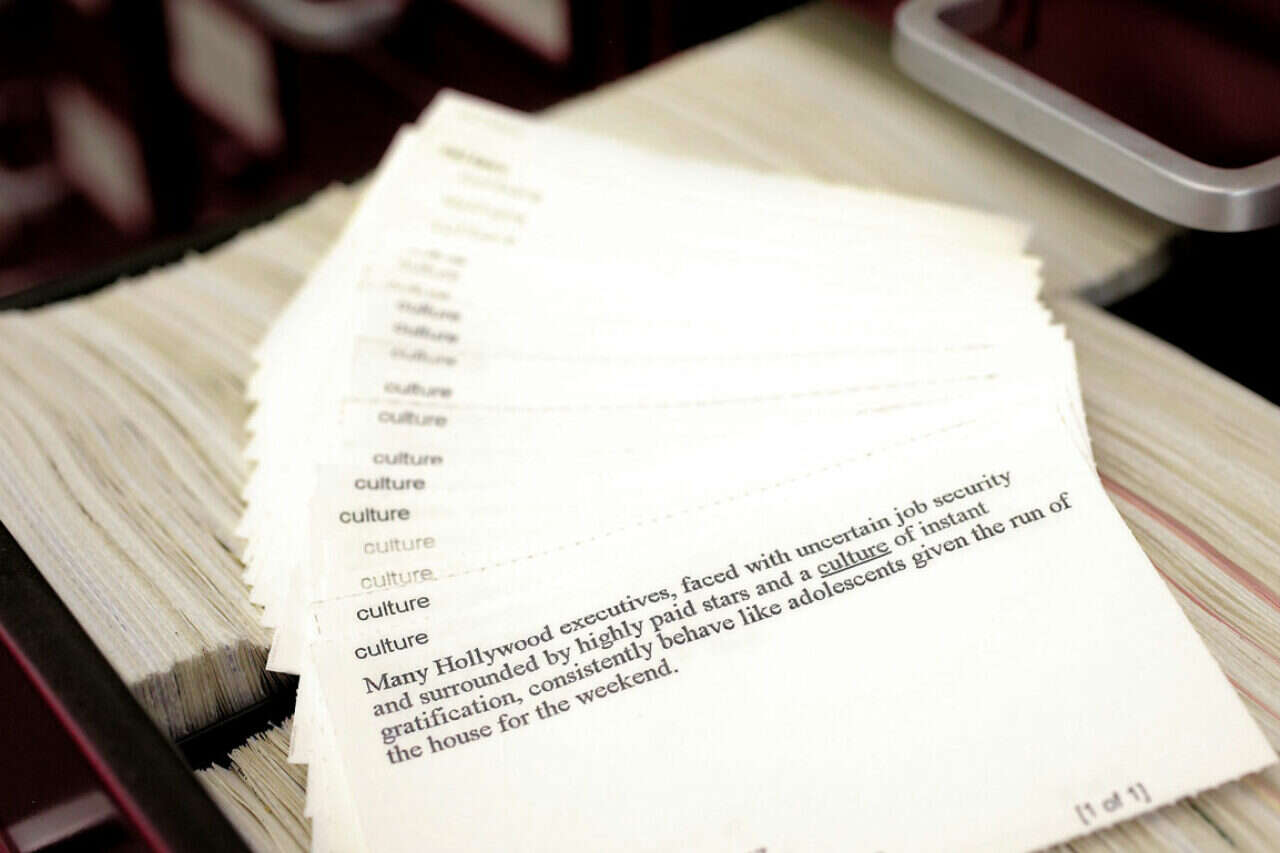 culture
culture
culture
culture
culture
culture
culture
culture
culture
culture
culture
culture
culture
Many Hollywood executives, faced with uncertain job security
and surrounded by highly paid stars and a culture of instant
gratification, consistently behave like adolescents given the run of
the house for the weekend.
[1 of 1]